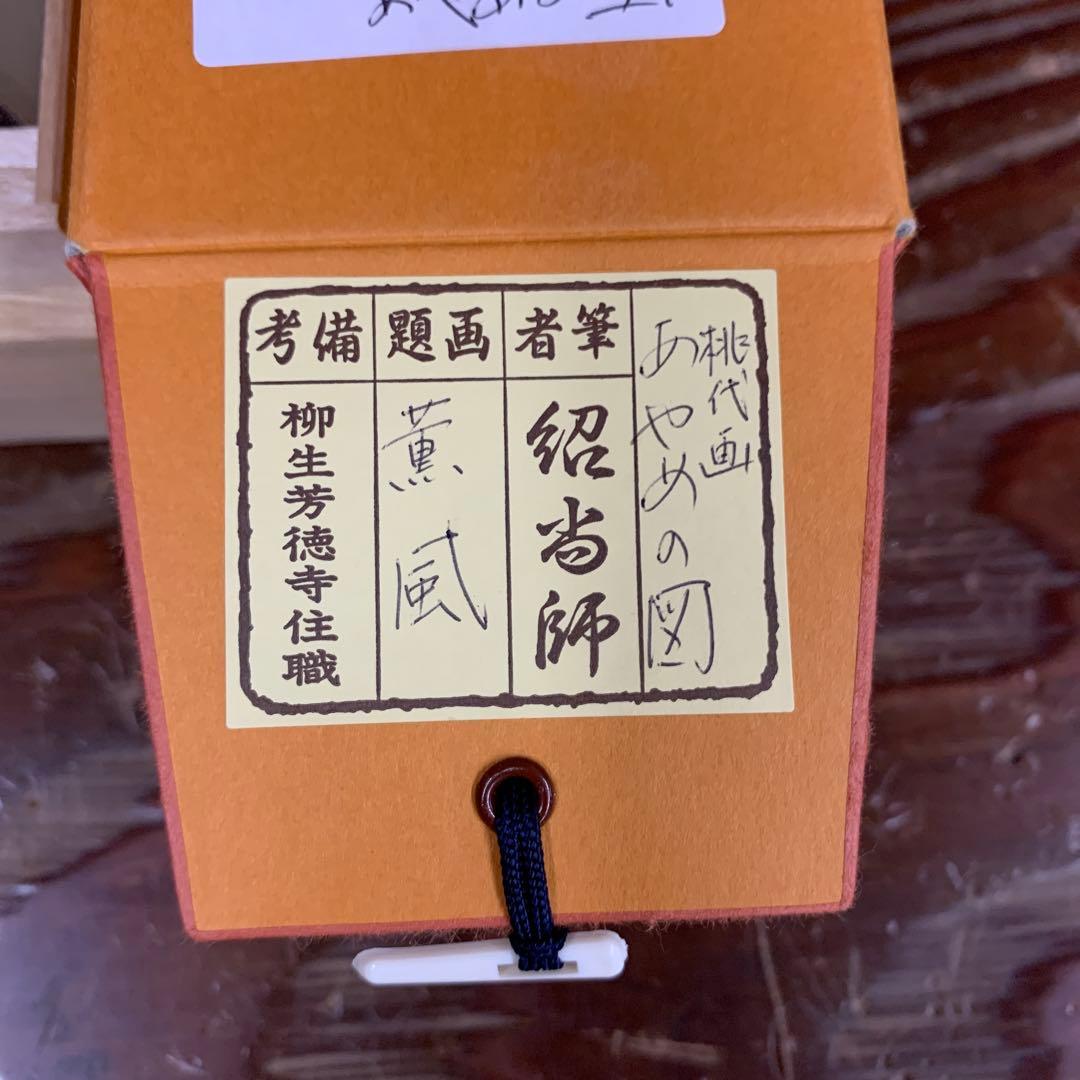 桃代画
あやめの図
筆者
紹尚師
画題
薫風
備考
柳生芳徳寺住職